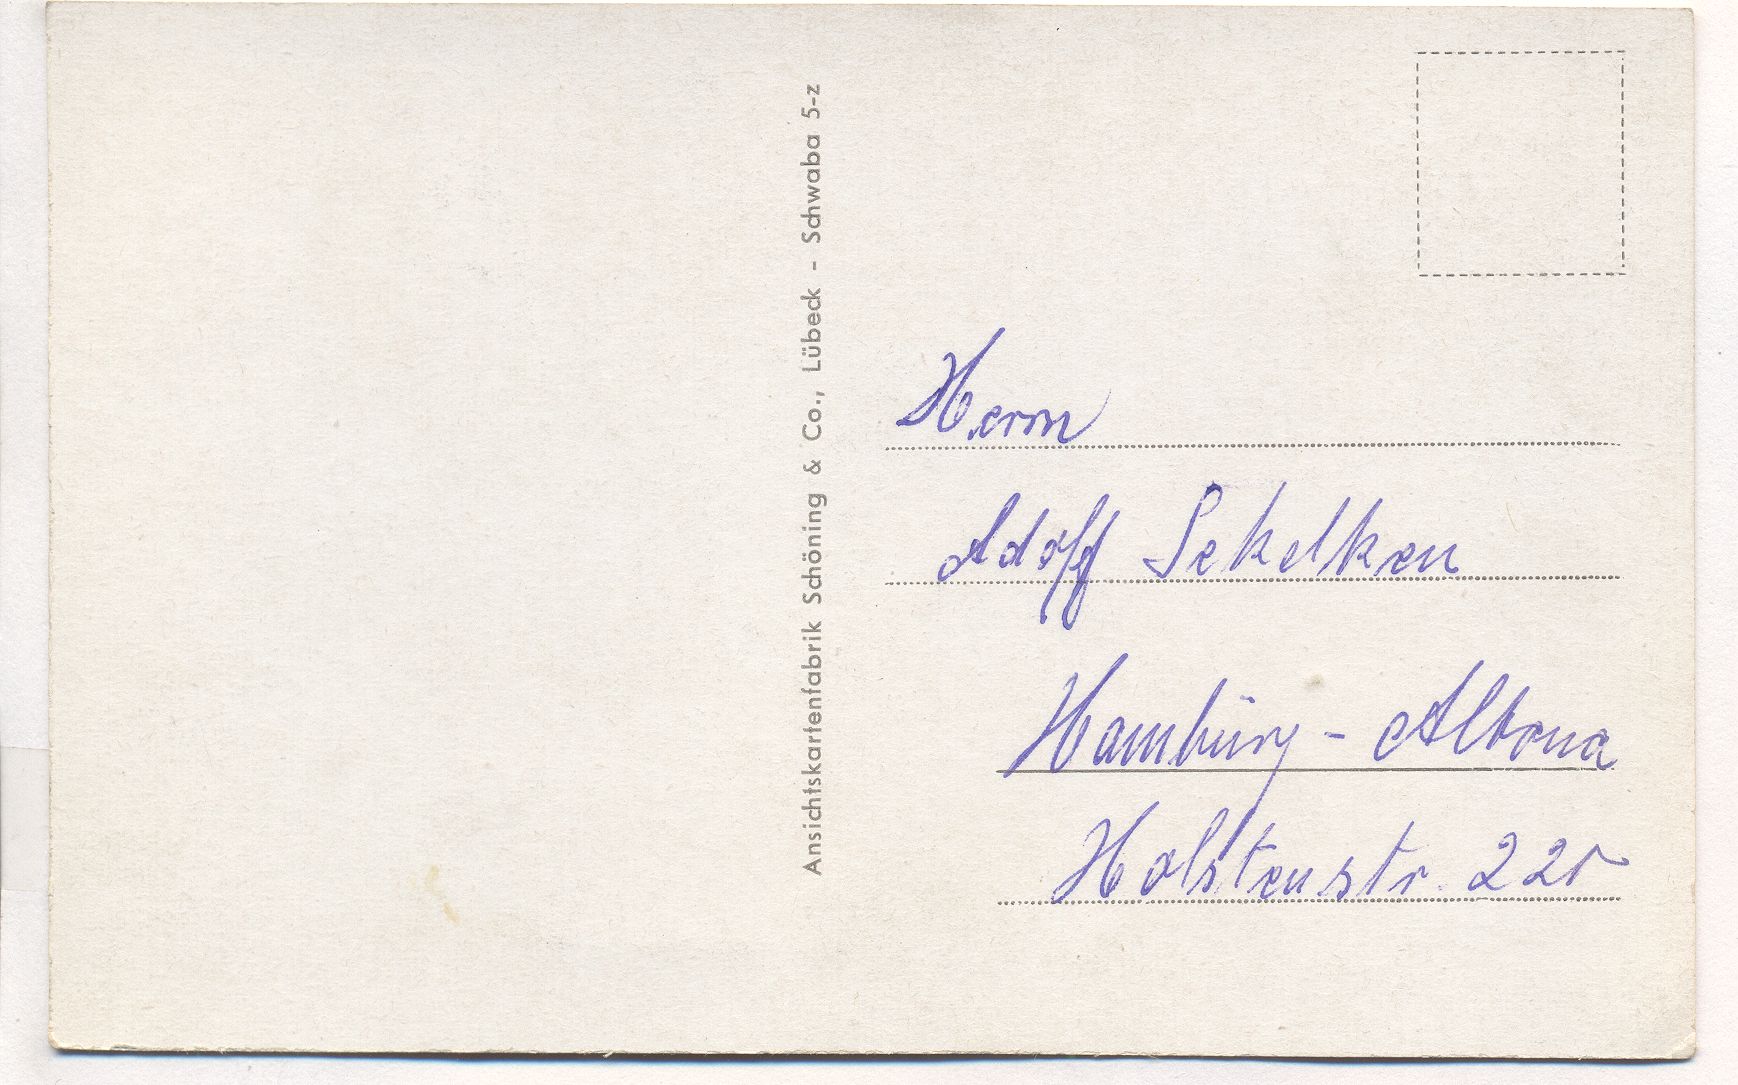 Ansichtskartenfabrik Schöning & Co., Lübeck - Schwaba 5-z
Herrn
Adolf Sekelken
Hamburg - Altona
Holstenstr.